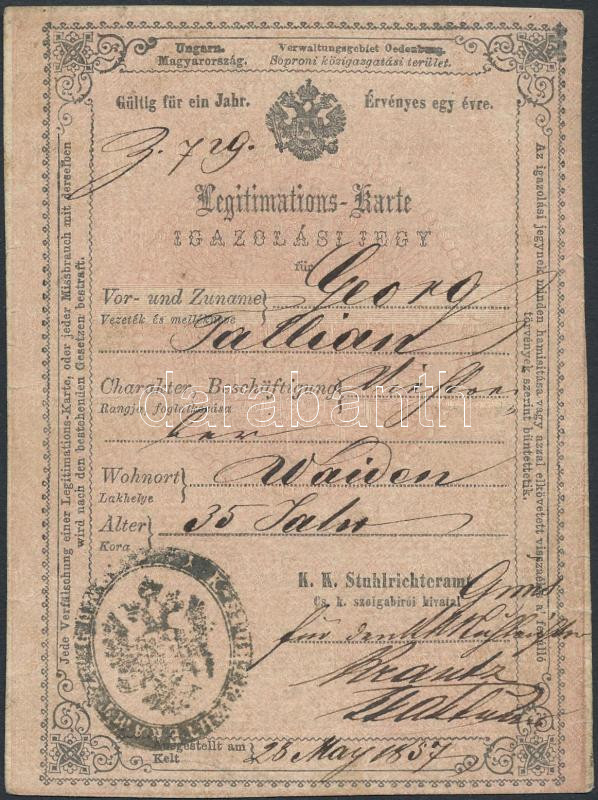 Ungarn. Verwaltungsgebiet Oedenburg.
Magyarország. Soproni közigazgatási terület.
Gültig für ein Jahr. Érvényes egy évre.
Z. 729.
Legitimations-Karte
IGAZOLÁSI JEGY
für
Vor- und Zuname Georg
Vezeték és mellékneve
Tallian
Charakter, Beschäftigung
Rangja, foglalkozása
ber
Wohnort Waiden
Lakhelye
Alter 35 Jahr
Kora
K. K. Stuhlrichteramt
Cs. k. szolgabirói hivatal
für den
Ausgestellt am 28 May 1857
Kelt
Jede Verfälschung einer Legitimations-Karte, oder jeder Missbrauch mit derselben
wird nach den bestehenden Gesetzen bestraft.
Az igazolási jegynek minden hamisitása vagy azzal elkövetett visszaélés a' fennálló
törvények szerint büntettetik.
darabanth